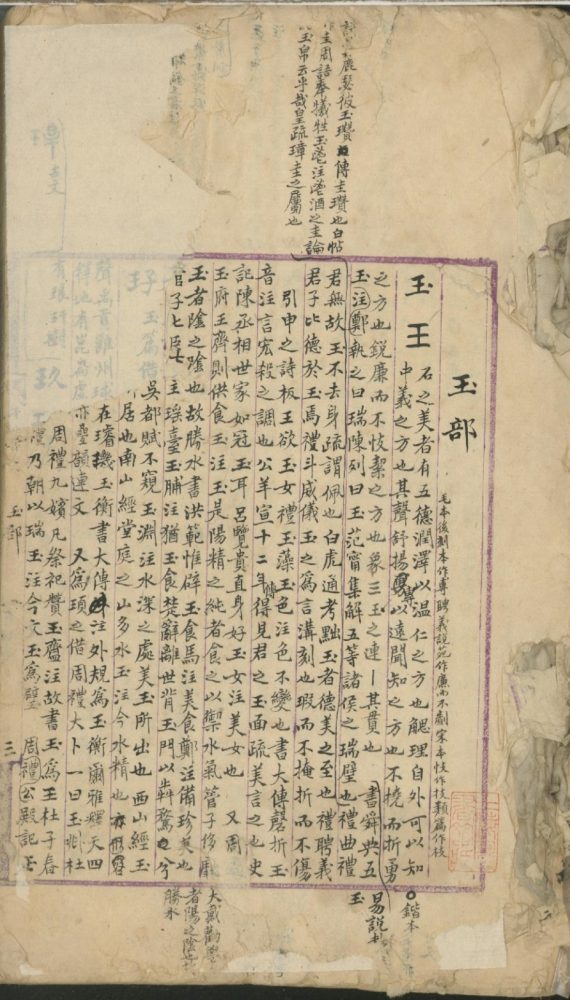 毛本後刻本作專聘義説苑作廉而不劌宋本忮作技類篇作枝
玉部
玉王 石之美者有五德潤澤以温仁之方也䚡理自外可以知
中義之方也其聲舒揚專以遠聞知之方也不撓而折勇
之方也鋭廉而不忮絜之方也象三玉之連丨其貫也 書舜典五
玉注鄭執之曰瑞陳列曰玉范甯集解五等諸侯之瑞璧也禮曲禮
君無故玉不去身疏謂佩也白虎通考黜玉者德美之至也禮聘義
君子比德於玉焉禮斗威儀玉之為言溝刻也瑕而不掩折而不傷
引申之詩板王欲玉女禮玉藻玉色注色不變也書大傳磬折玉
音注言宏殺之調也公羊宣十二年傳得見君之玉面疏美言之也史
記陳丞相世家如冠玉耳呂覽貴直身好玉女注美女也 又周
玉府王齊則供食玉注玉是陽精之純者食之以禦水氣管子侈靡
玉者陰之陰也故勝水書洪範惟辟玉食馬注美食鄭注備珍美也
管子七臣七主瑤臺玉脯注猶玉食楚辭離世背玉門以犇騖兮
吳都賦不窺玉淵注水深之處美玉所出也西山經玉
居也南山經堂庭之山多水玉注今水精也亦
在璿璣玉衡書大傳注外規為玉衡爾雅釋天四
亦疊韻連文 又為頊之借周禮大卜一曰玉兆杜
周禮九嬪凡祭祀贊玉齍注故書玉為王杜子春
禮乃朝以瑞玉注今文玉為璧 周禮
玉部
三
鹿瑟彼玉瓚傳圭瓚也白帖
圭周語奉犧牲玉鬯注鬯酒之圭論
玉帛云乎哉皇疏璋圭之屬也
鍇本
易説
玉
大戴勸學
者陽之陰也故
勝水